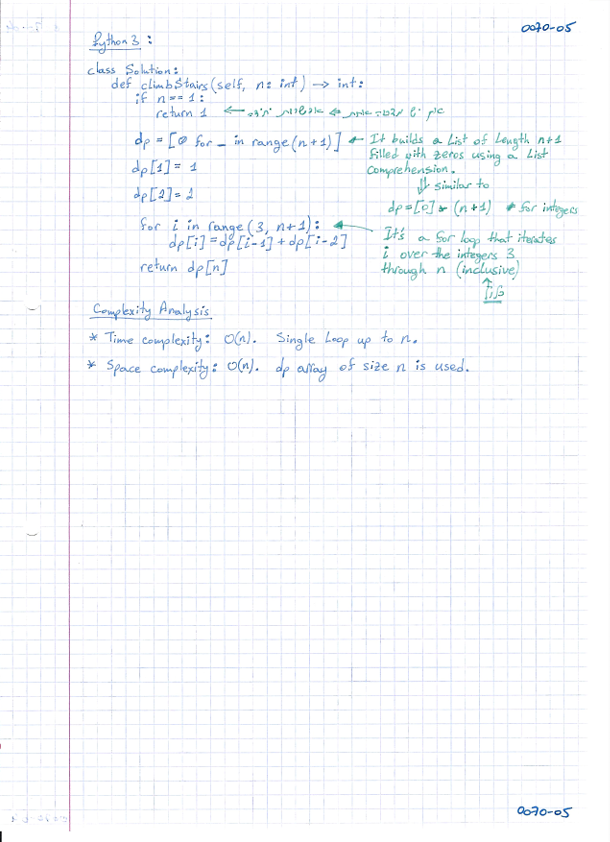 0070-05
Python 3 :
class Solution:
def climbStairs(self, n: int) → int:
if n == 1:
return 1 ←
dp = [0 for _ in range(n+1)] ← It builds a List of Length n+1
filled with zeros using a List
comprehension.
dp[1] = 1
⇓ similar to
dp[2] = 2
dp = [0] * (n+1) * for integers
for i in range(3, n+1): ←
dp[i] = dp[i-1] + dp[i-2]
It's a for loop that iterates
i over the integers 3
through n (inclusive)
return dp[n]
Complexity Analysis
* Time complexity: O(n). Single Loop up to n.
* Space complexity: O(n). dp array of size n is used.
0070-05